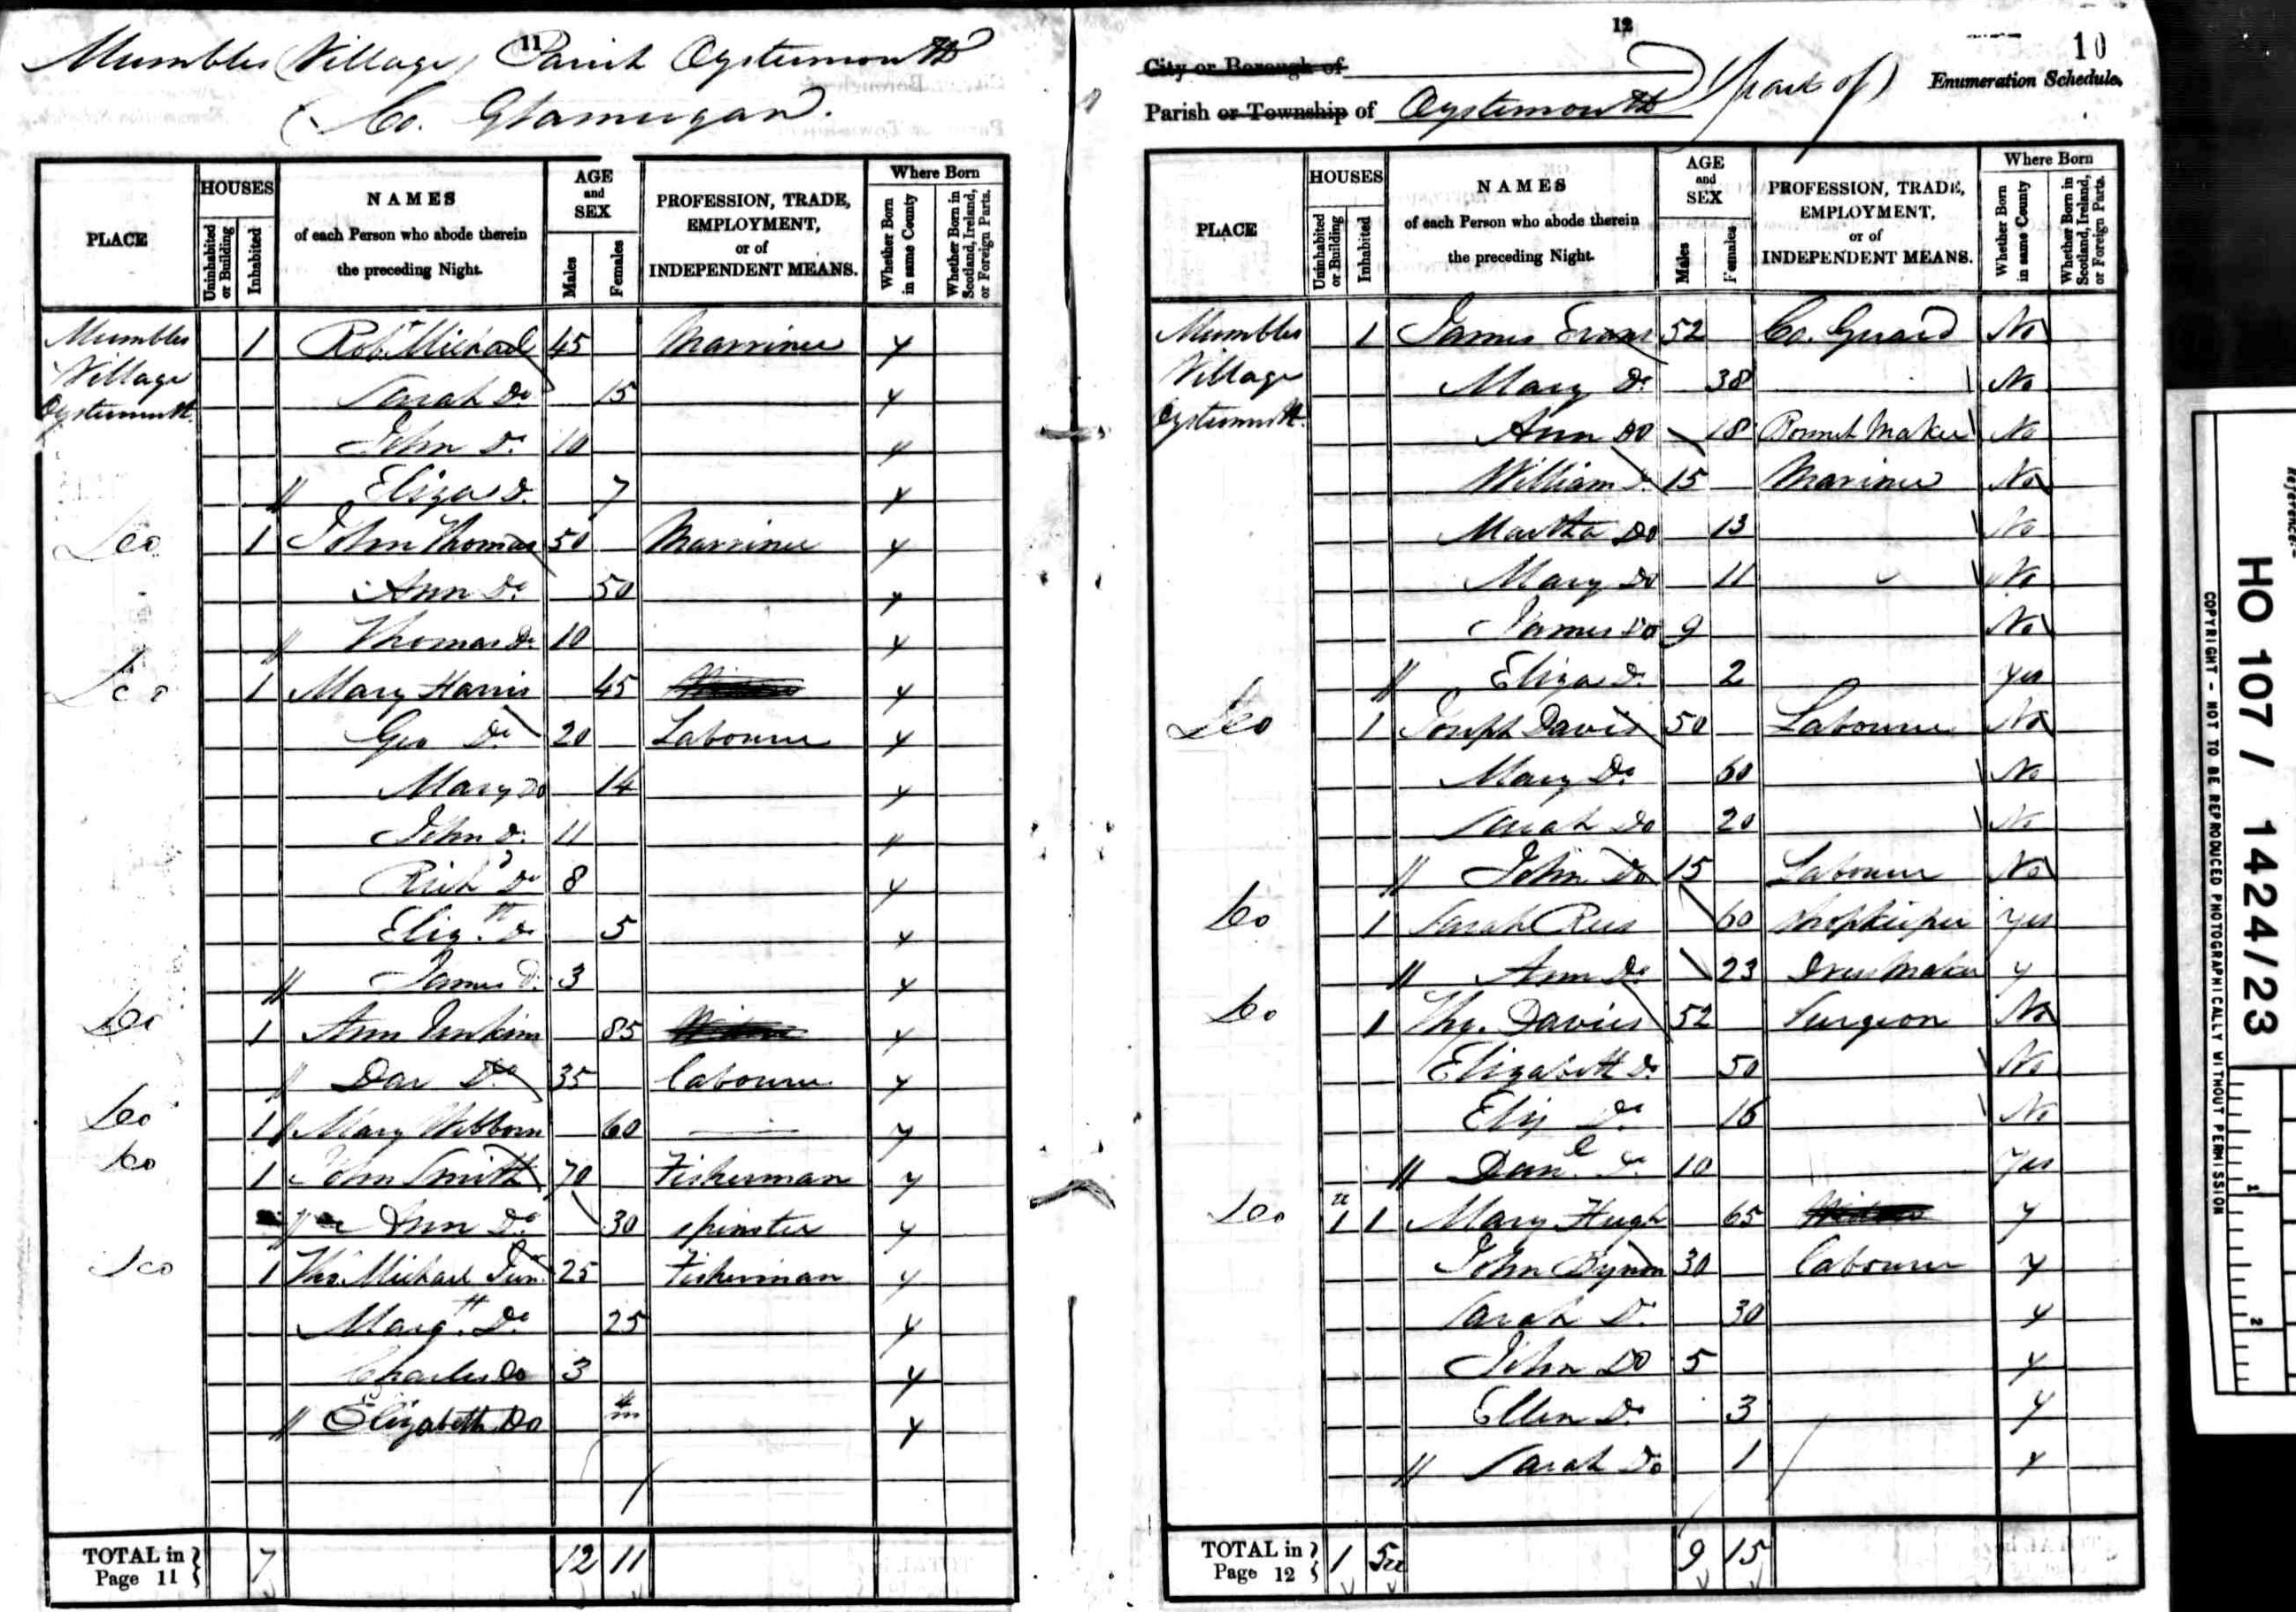 11
Mumbles Village Parish Oystermouth
Co. Glamorgan.
PLACE
HOUSES
Uninhabited or Building
Inhabited
NAMES
of each Person who abode therein
the preceding Night.
AGE
and
SEX
Males
Females
PROFESSION, TRADE,
EMPLOYMENT,
or of
INDEPENDENT MEANS.
Where Born
Whether Born in same County
Whether Born in Scotland, Ireland, or Foreign Parts.
Mumbles 1 Robt Michael 45 Marriner y
Village Sarah Do 15 y
Oystermouth. John Do 10 y
" Eliza Do 7 y
Do 1 John Thomas 50 Marriner y
Ann Do 50 y
" Thomas Do 10 y
Do 1 Mary Harris 45 y
Geo Do 20 Labourer y
Mary Do 14 y
John Do 11 y
Richd Do 8 y
Elizth Do 5 y
" James Do 3 y
Do 1 Ann Jenkins 85 y
" Dav Do 35 Labourer y
Do 1 " Mary 60 y
Do 1 John Smith 70 Fisherman y
" Ann Do 30 spinster y
Do 1 Thos Michael Jun 25 Fisherman y
Margtt Do 25 y
Charles Do 3 y
" Elizabeth Do y
TOTAL in Page 11 7 12 11
12
10
City or Borough of
Enumeration Schedule.
Parish or Township of Oystermouth (part of)
PLACE
HOUSES
Uninhabited or Building
Inhabited
NAMES
of each Person who abode therein
the preceding Night.
AGE
and
SEX
Males
Females
PROFESSION, TRADE,
EMPLOYMENT,
or of
INDEPENDENT MEANS.
Where Born
Whether Born in same County
Whether Born in Scotland, Ireland, or Foreign Parts.
Mumbles 1 James Evans 52 Co. Guard No
Village Mary Do 38 No
Oystermouth. Ann Do 18 Bonnet Maker No
William Do 15 Mariner No
Martha Do 13 No
Mary Do 11 No
James Do 9 No
" Eliza Do 2 yes
Do 1 Joseph Davis 50 Labourer No
Mary Do 60 No
Sarah Do 20 No
" John Do 15 Labourer No
Do 1 Sarah Rees 60 Shopkeeper yes
" Ann Do 23 Dress Maker y
Do 1 Thos. Davies 52 Surgeon No
Elizabeth Do 50 No
Eliz Do No
" Danl Do 10 yes
Do 1 1 Mary Hugh 65 y
John Bynon 30 Labourer y
Sarah Do 30 y
John Do 5 y
Ellen Do 3 y
" Sarah Do 1 y
TOTAL in Page 12 1 5 9 15
Reference:-
HO 107 / 1424/23
COPYRIGHT - NOT TO BE REPRODUCED PHOTOGRAPHICALLY WITHOUT PERMISSION
1
2